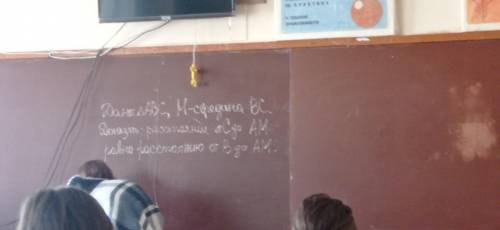 Дано: △ABC, M-середина BC.
Доказать: расстояние от C до AM
равно расстоянию от B до AM.